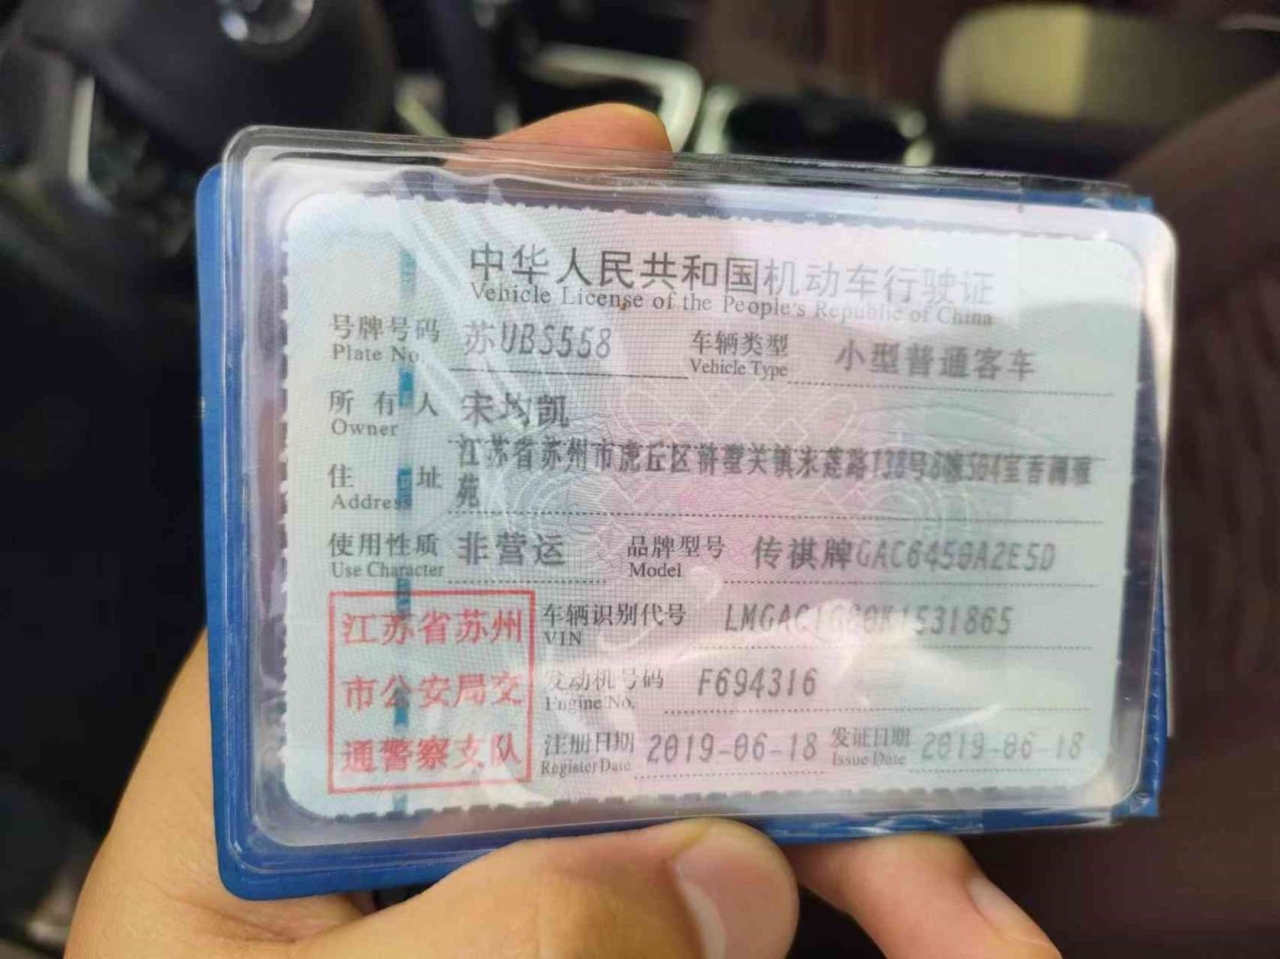 中华人民共和国机动车行驶证
Vehicle License of the People's Republic of China
号牌号码 苏UBS558 车辆类型 小型普通客车
Plate No. Vehicle Type
所有人 宋均凯
Owner
住址 江苏省苏州市虎丘区浒墅关镇木莲路138号8幢504室香澜雅
Address 苑
使用性质 非营运 品牌型号 传祺牌GAC6450A2E5D
Use Character Model
江苏省苏州 车辆识别代号
VIN
市公安局交 发动机号码 F694316
Engine No.
通警察支队 注册日期 2019-06-18 发证日期 2019-06-18
Register Date Issue Date